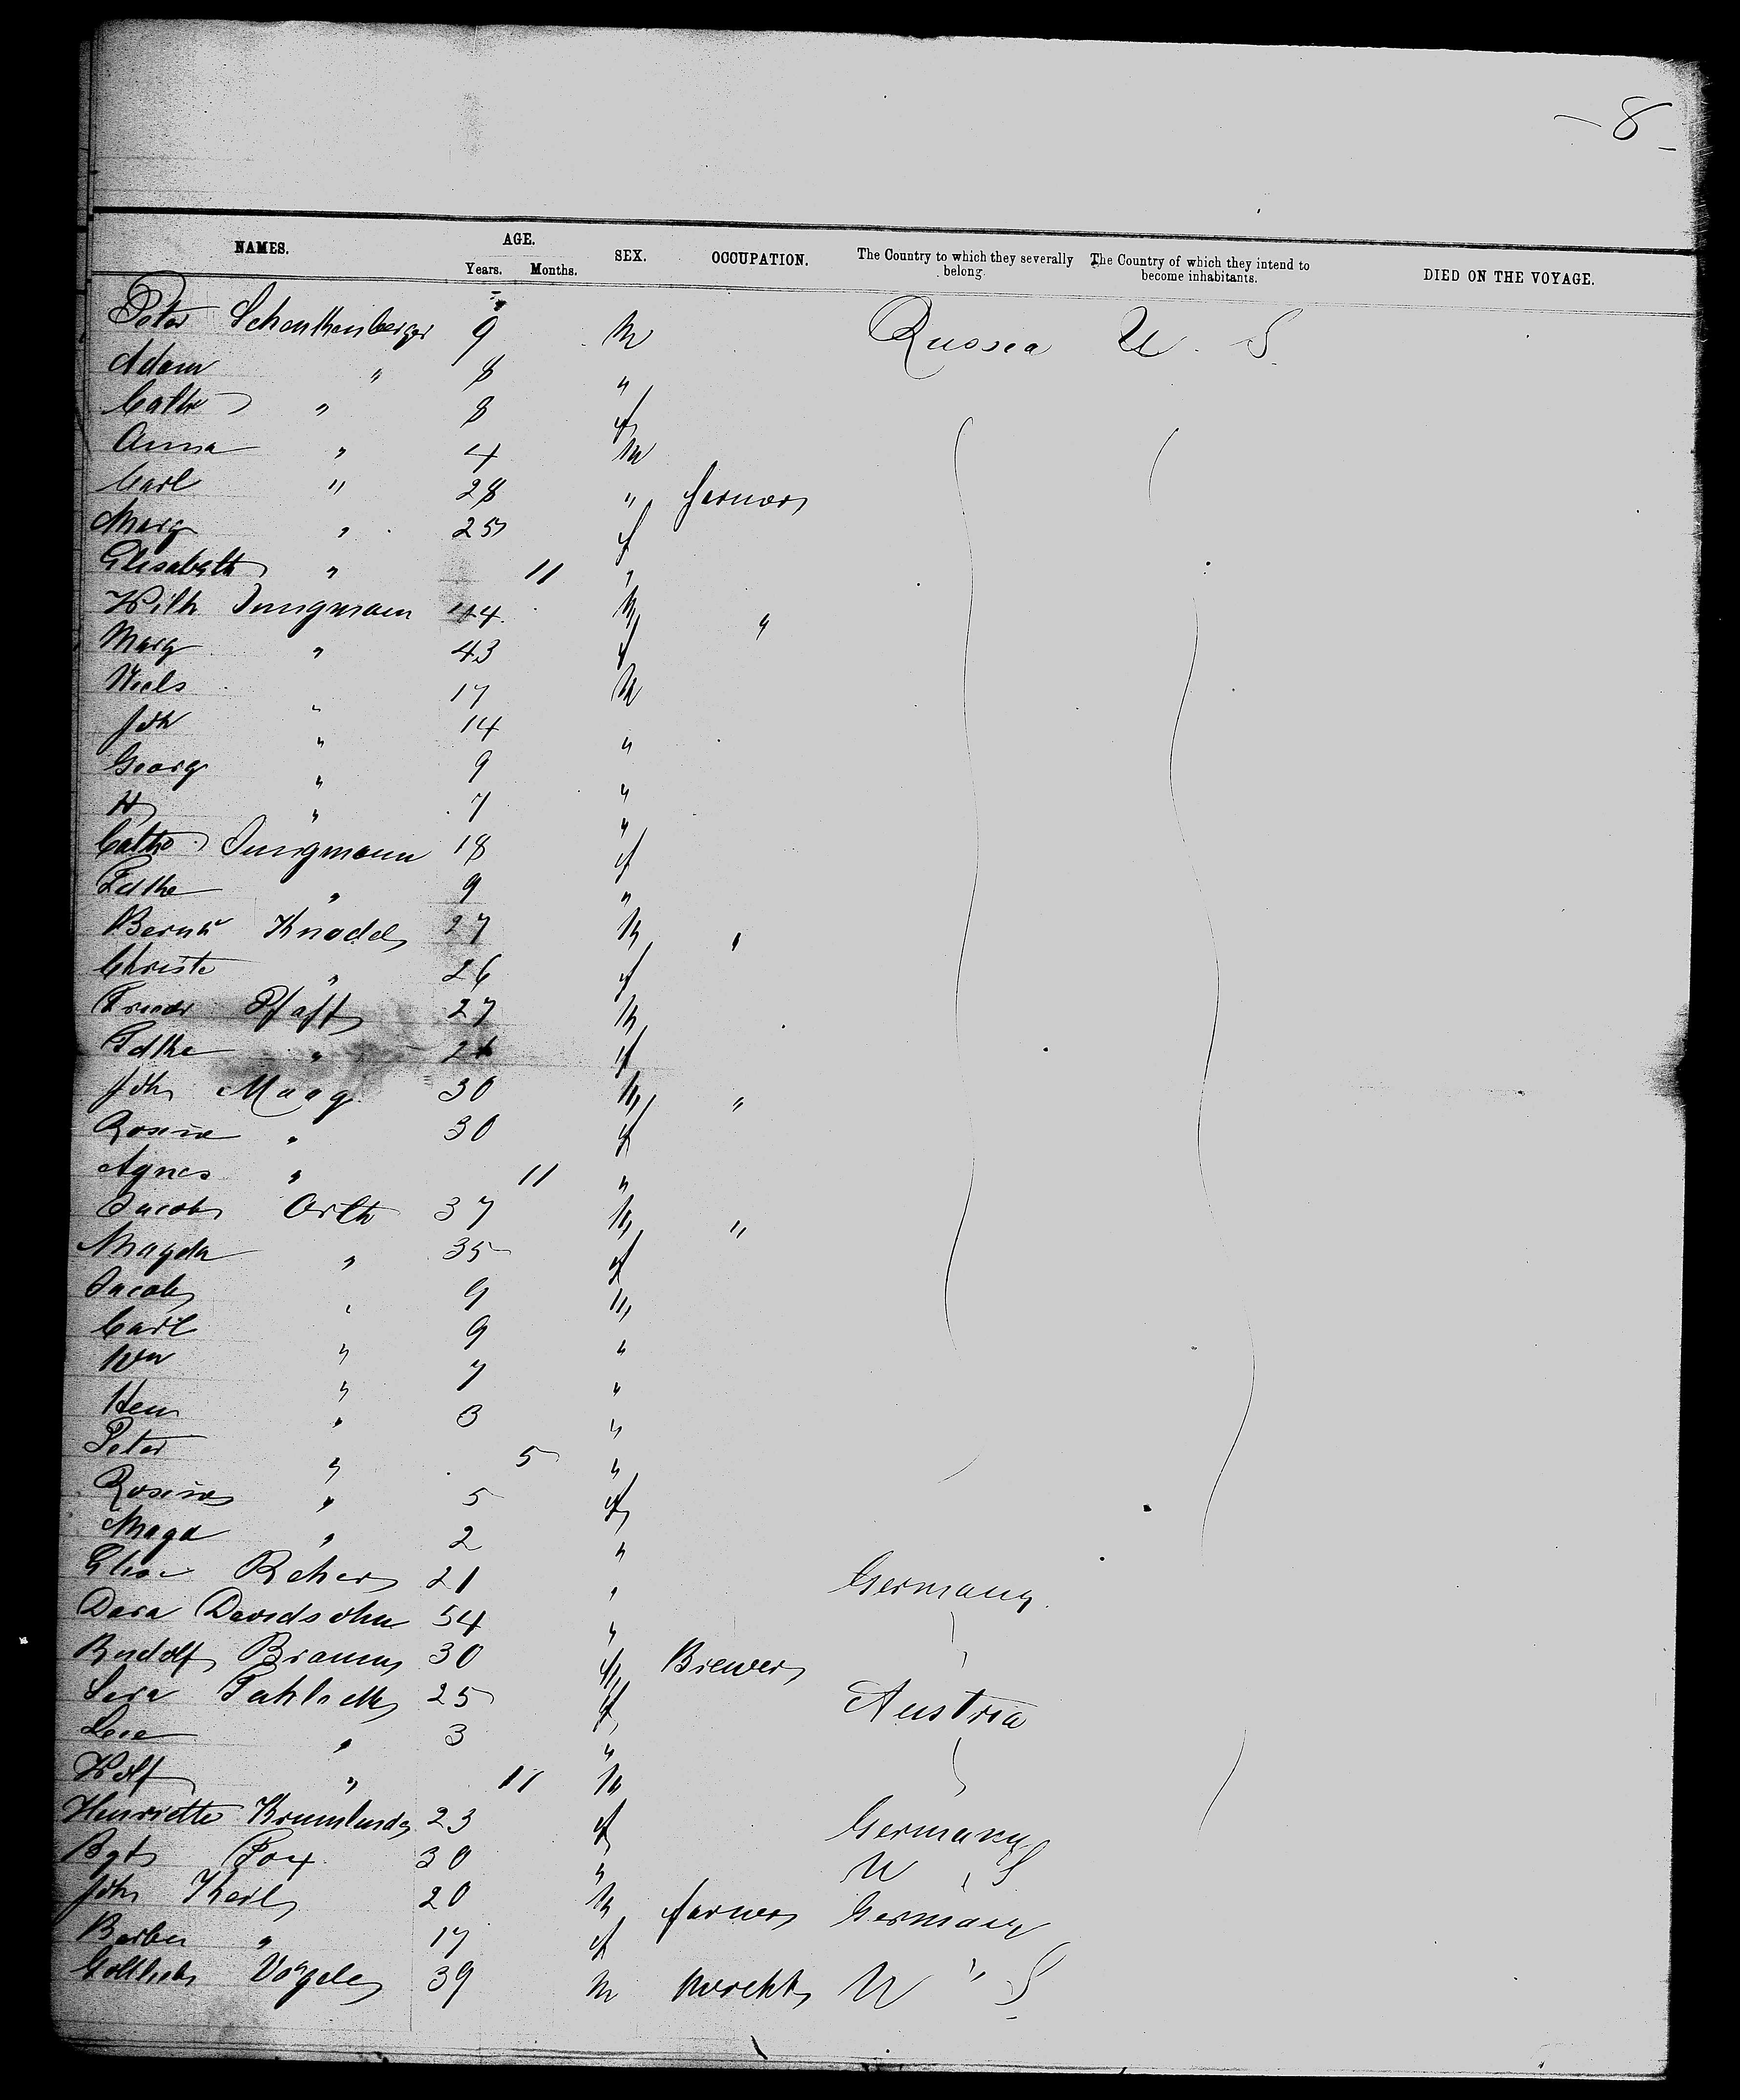 - 8 -
NAMES. AGE. Years. Months. SEX. OCCUPATION. The Country to which they severally belong. The Country of which they intend to become inhabitants. DIED ON THE VOYAGE.
Peter Schenkenberger 9 M Russia U. S.
Adam " 8 "
Cathe " 8 f
Anna " 4 M
Carl " 28 " farmer
Marg " 25 f
Elisabeth " 11 "
Wilh Jungmann 44 M "
Marg " 43 f
" 17 M
Joh " 14 "
Georg " 9 "
H " 7 "
Cathe Jungmann 18 f
" 9 "
Bernh Knodel 27 M "
Christe " 26 f
Pfaff 27 M
" f
Joh Maag 30 M "
Rosine " 30 f
Agnes " 11 "
Jacob Orth 37 M "
Magda " 35 f
Jacob " 9 M
Carl " 9 "
Wm " 7 "
Hen " 3 "
Peter " 5 "
Rosine " 5 f
Magd " 2 "
Elise Reher 21 " Germany
Dora Davidsohn 54 "
Rudolf 30 M Brewer
Sara 25 f Austria
" 3 "
Wolf " 11 M
Henriette 23 f Germany
30 " U. S
Joh Keil 20 M farmer Germany
Barba " 17 f "
Gottlieb Vögele 39 M U " S